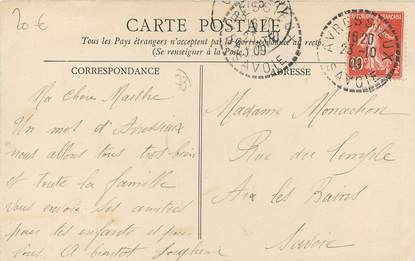 20 €
CARTE POSTALE
Tous les Pays étrangers n'acceptent pas la correspondance au recto
(Se renseigner à la Poste).
CORRESPONDANCE
ADRESSE
16 20
23 - 10
09
SAVOIE
Ma chère Marthe
Un mot d'
nous allons tous très bien
et toute la famille
vous envoie ses amitiés
pour les enfants et pour
vous. A bientôt
Madame Monachon
Rue du Temple
Aix les Bains
Savoie